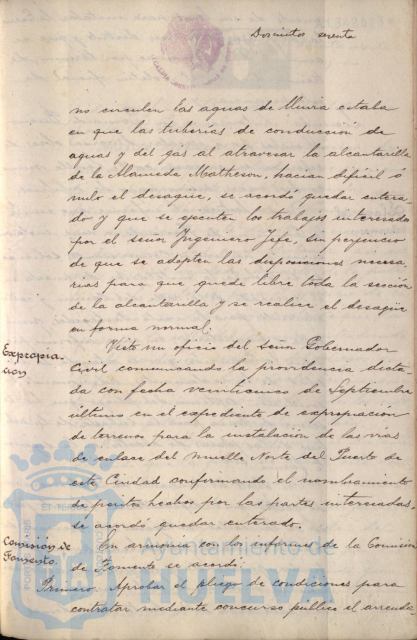 Doscientos sesenta
no circulen las aguas de lluvia estaba
en que las tuberías de conducción de
aguas y del gás al atravesar la alcantarilla
de la Alameda Matheson, hacían dificil ó
nulo el desagüe, se acordó quedar entera-
do y que se ejecuten los trabajos interesados
por el señor Ingeniero Jefe, sin perjuicio
de que se adopten las disposiciones necesa-
rias para que quede libre toda la sección
de la alcantarilla y se realice el desagüe
en forma normal.
Expropia-
cion
Visto un oficio del Señor Gobernador
Civil comunicando la providencia dicta-
da con fecha veinticinco de Septiembre
último en el expediente de expropiacion
de terrenos para la instalación de las vías
de enlace del Muelle Norte del Puerto de
esta Ciudad confirmando el nombramiento
de peritos hechos por las partes interesadas,
se acordó quedar enterado.
Comisión de
Fomento.
En armonia con los informes de la Comision
de Fomento se acordó:
Primero. Aprobar el pliego de condiciones para
contratar mediante concurso público el arrenda-
Ayuntamiento de
HUELVA